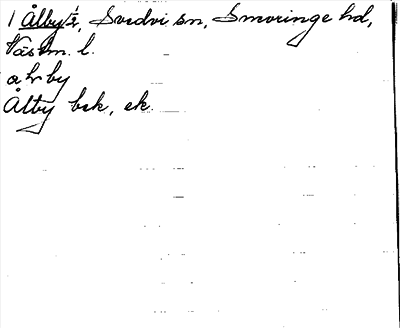 1 Ålby ½, Svedvi sn, Snevringe hd,
Västm. l.
a hr by
Ålby bsk, ek.